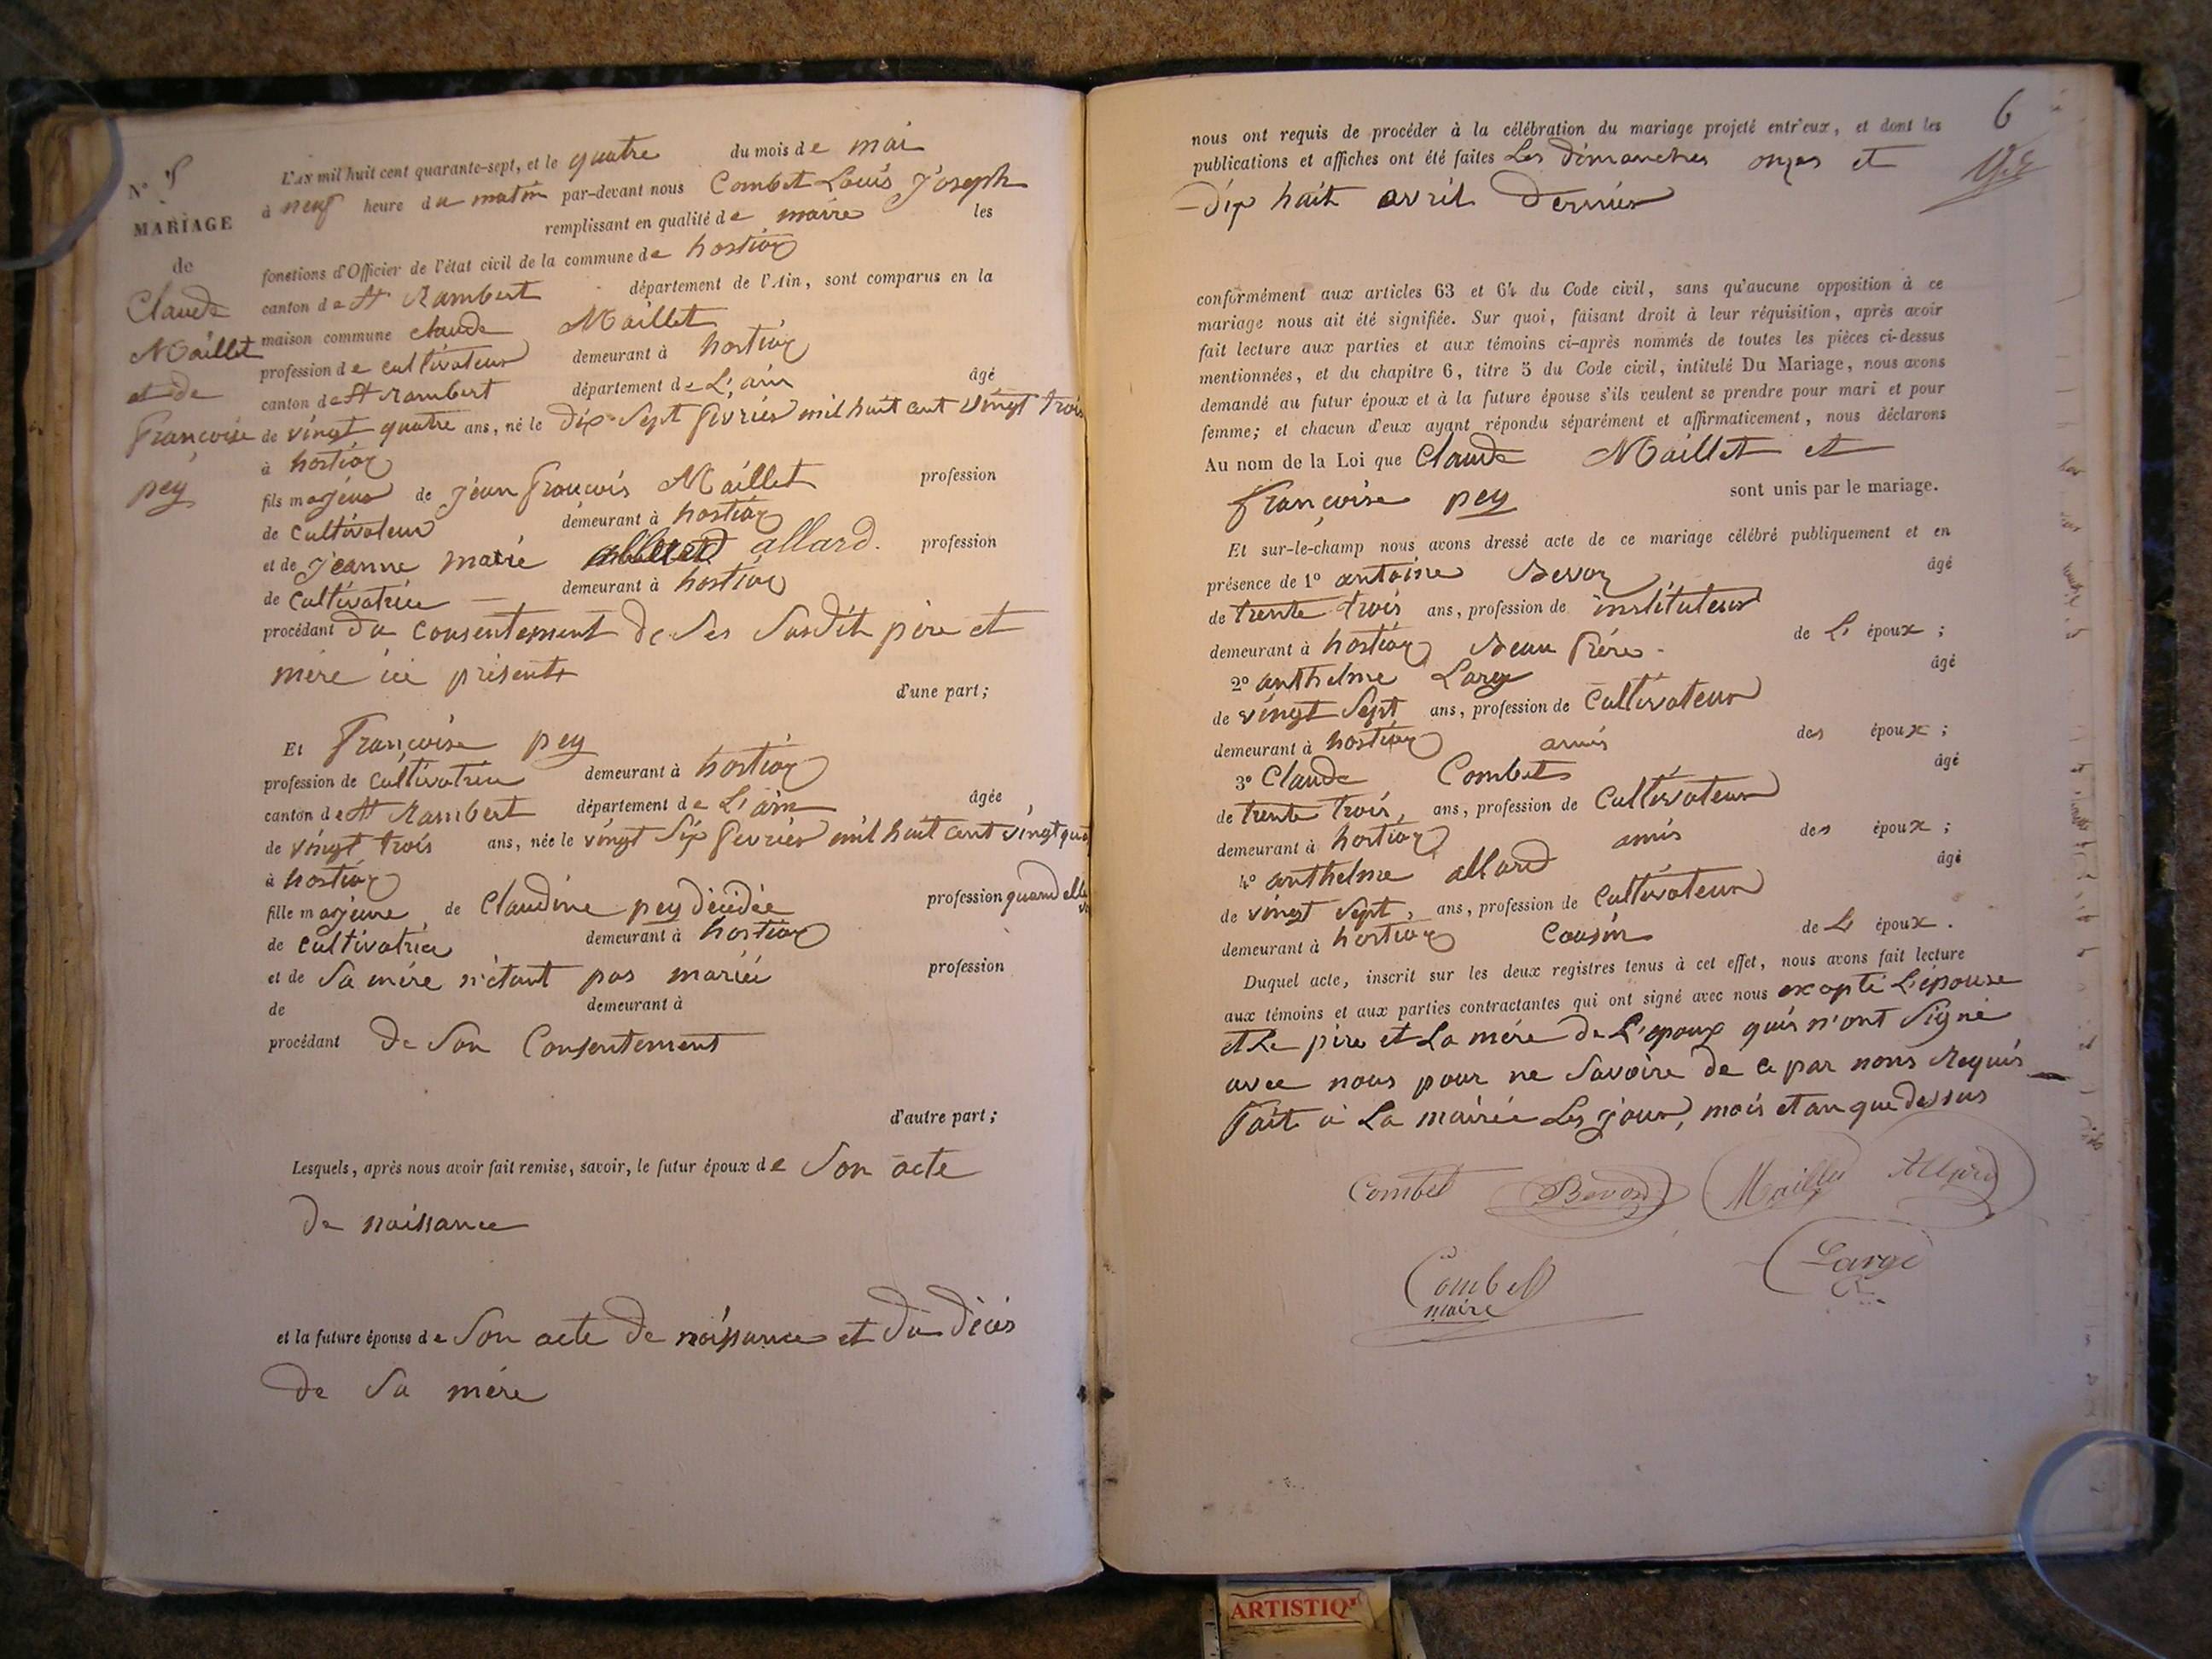 N° 5
MARIAGE
de
Claude
Maillet
et de
françoise
pey
L'AN mil huit cent quarante-sept, et le quatre du mois de mai
à neuf heure du matin par-devant nous Combet Louis Joseph
remplissant en qualité de maire les
fonctions d'Officier de l'état civil de la commune de hostiaz
canton de St Rambert département de l'Ain, sont comparus en la
maison commune claude Maillet
profession de cultivateur demeurant à hostiaz
canton de St rambert département de L'ain âgé
de vingt quatre ans, né le dix Sept fevrier mil huit cent vingt trois
à hostiaz
fils majeur de jean françois Maillet profession
de Cultivateur demeurant à hostiaz
et de jeanne marie allard. profession
de Cultivatrice demeurant à hostiaz
procédant du consentement de Ses Susdit père et
mère ici présent
d'une part;
Et françoise pey
profession de Cultivatrice demeurant à hostiaz
canton de St Rambert département de L'ain âgée
de vingt trois ans, née le vingt Six fevrier mil huit cent vingt
à hostiaz
fille majeure de Claudine pey décédée profession quand elle
de cultivatrice demeurant à hostiaz
et de Sa mère n'étant pas mariée profession
de demeurant à
procédant de Son Consentement
d'autre part;
Lesquels, après nous avoir fait remise, savoir, le futur époux de Son acte
de naissance
et la future épouse de Son acte de naissance et du décès
de Sa mère
6
nous ont requis de procéder à la célébration du mariage projeté entr'eux, et dont les
publications et affiches ont été faites Les dimanches onze et
dix huit avril dernier
conformément aux articles 63 et 64 du Code civil, sans qu'aucune opposition à ce
mariage nous ait été signifiée. Sur quoi, faisant droit à leur réquisition, après avoir
fait lecture aux parties et aux témoins ci-après nommés de toutes les pièces ci-dessus
mentionnées, et du chapitre 6, titre 5 du Code civil, intitulé Du Mariage, nous avons
demandé au futur époux et à la future épouse s'ils veulent se prendre pour mari et pour
femme; et chacun d'eux ayant répondu séparément et affirmativement, nous déclarons
Au nom de la Loi que Claude Maillet et
françoise pey sont unis par le mariage.
Et sur-le-champ nous avons dressé acte de ce mariage célébré publiquement et en
présence de 1° antoine Bevoz âgé
de trente trois ans, profession de instituteur
demeurant à hostiaz Beau frère de L'époux;
2° anthelme Large âgé
de vingt Sept ans, profession de Cultivateur
demeurant à hostiaz amis des époux;
3° Claude Combet âgé
de trente trois, ans, profession de Cultivateur
demeurant à hostiaz amis des époux;
4° anthelme allard âgé
de vingt Sept, ans, profession de Cultivateur
demeurant à hostiaz Cousin de L'époux.
Duquel acte, inscrit sur les deux registres tenus à cet effet, nous avons fait lecture
aux témoins et aux parties contractantes qui ont signé avec nous excepté L'épouse
et Le père et La mère de L'epoux quis n'ont Signé
avec nous pour ne Savoire de ce par nous Requis
fait à La mairie Les jour, mois et an que dessus
Combet Bevoz Maillet Allard
Large
Combet
maire
ARTISTIQ